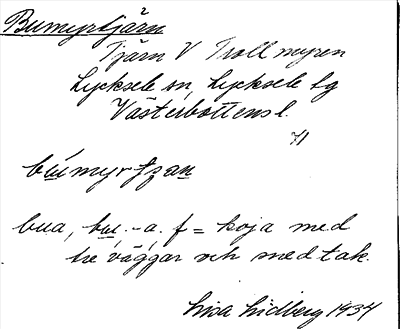 Bumyrtjärn
Tjärn V Trollmyren
Lycksele sn, Lycksele lg
Västerbottens l.
búmyrtzan
bua, bu. -a. f = koja med
tre väggar och med tak.
Lisa Lidberg 1934